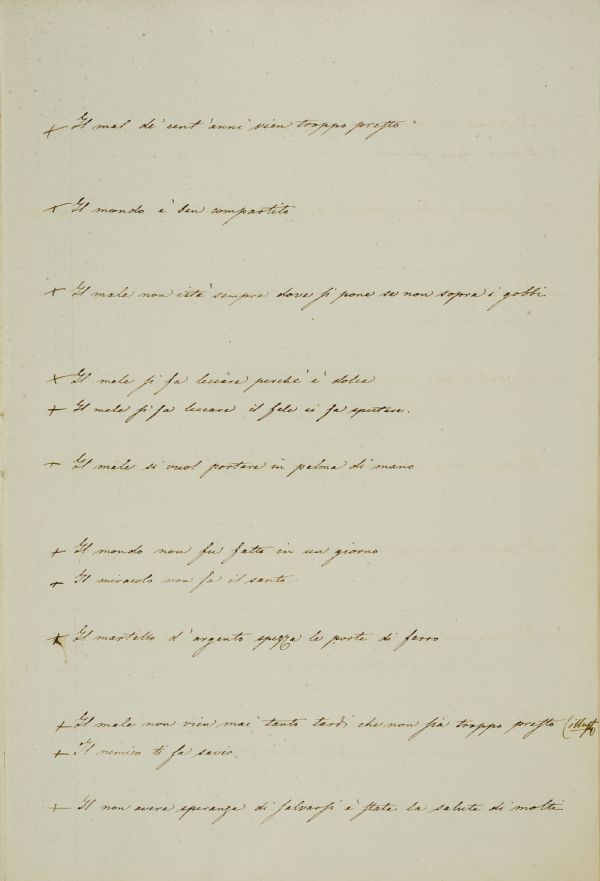 + Il mal de' cent'anni vien troppo presto
+ Il mondo è ben compartito
+ Il male non istà sempre dove si pone se non sopra i gobbi
+ Il mele si fa leccare perché è dolce
+ Il mele si fa leccare il fele si fa sputare.
+ Il male si vuol portare in palma di mano
+ Il mondo non fu fatto in un giorno
+ Il miracolo non fa il santo
+ Il martello d'argento spezza le porte di ferro
+ Il male non vien mai tanto tardi che non sia troppo presto (illust
+ Il nemico ti fa savio
+ Il non avere speranza di salvarsi è stata la salute di molti